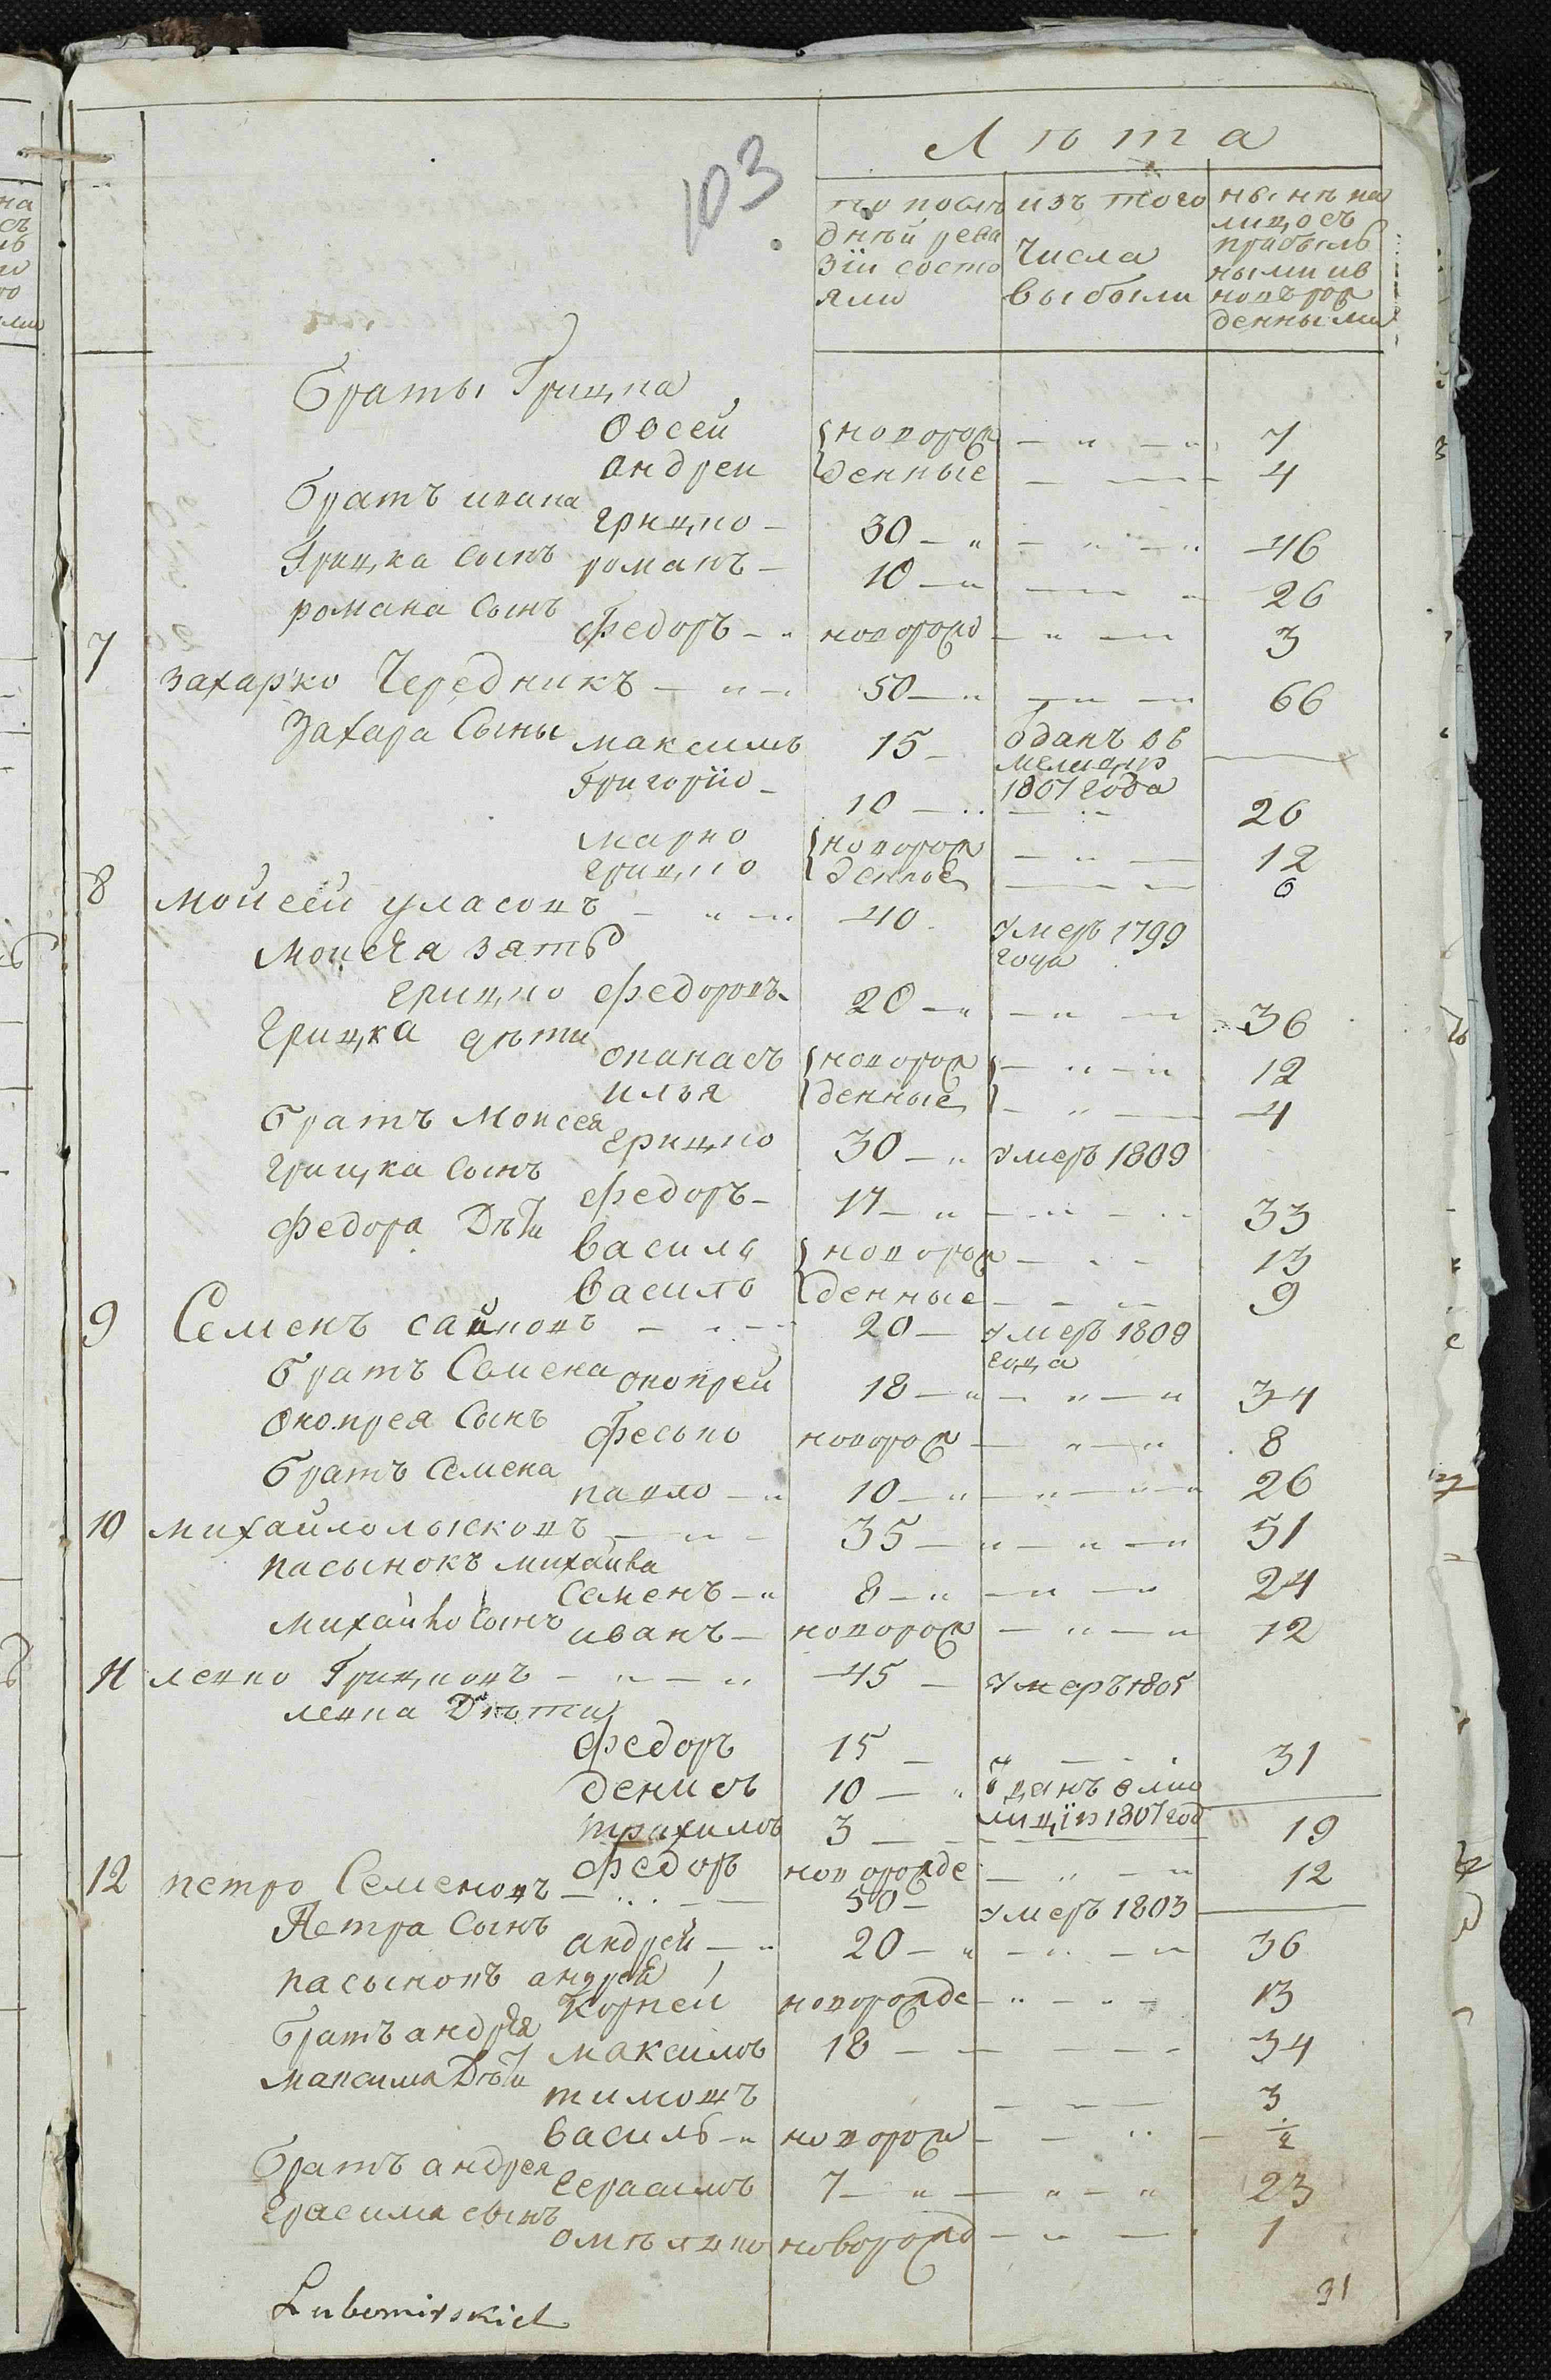 103
Лѣта
по послѣ
дней реви
зіи состо
яли
изъ того
числа
выбыли
нынѣ на
лицо съ
прибыль
ными и в
новорож
денными
Браты Грицка
Овсей новорож 7
Андреи денные 4
братъ ивана грицко 30 46
Грицка сынъ романъ 10 26
романа Сынъ Федоръ новорожд 3
7 захарко Чередникъ 50 66
Захара Сыны максимъ 15 ѿданъ в
мелицію
1807 года
Григорій 10 26
марко новорож 12
грицко денные 6
8 мойсей уласовъ 40 умеръ 1799
года
Мойсея зять
грицко федоровъ 20 36
Грицка дѣти опанасъ новорож 12
илья денные 4
братъ Мойсея грицко 30 умеръ 1809
грицка сынъ федоръ 17 33
федора Дѣти василь новорож 13
василь денные 9
9 Семенъ савковъ 20 умеръ 1809
года
братъ Семена онопрей 18 34
Онопрея Сынъ Фесько новорож 8
братъ Семена павло 10 26
10 михайло лысковъ 35 51
пасынокъ михайла
Семенъ 8 24
михайло Сынъ иванъ новорож 12
11 левко Грицковъ 45 умеръ 1805
левка Дѣти
федоръ 15 31
денисъ 10 ѿданъ в ми
лицію 1807 год
трахимъ 3 19
федоръ новорожде 12
12 петро Семеновъ 50 умеръ 1803
Петра Сынъ андрей 20 36
пасынокъ андрея
корней новорожде 13
братъ андрея максимъ 18 34
максима Дѣти тимошъ 3
василь новорож 1/2
братъ андрея герасимъ 7 23
герасима сынъ омѣлянко новорожд 1
31